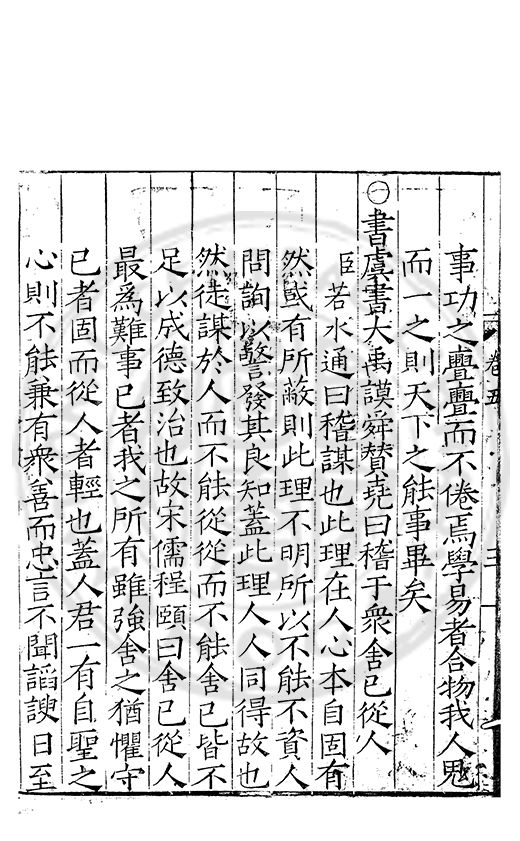 事功之亹亹而不倦焉學易者合物我人鬼
而一之則天下之能事畢矣
○書虞書大禹謨舜贊堯曰稽于衆舍已從人
臣若水通曰稽謀也此理在人心本自固有
然或有所蔽則此理不明所以不能不資人
問詢以警發其良知蓋此理人人同得故也
然徒謀於人而不能從從而不能舍已皆不
足以成德致治也故宋儒程頤曰舍已從人
最爲難事已者我之所有雖強舍之猶懼守
已者固而從人者輕也蓋人君一有自聖之
心則不能兼有衆善而忠言不聞謟諛日至
卷五
三